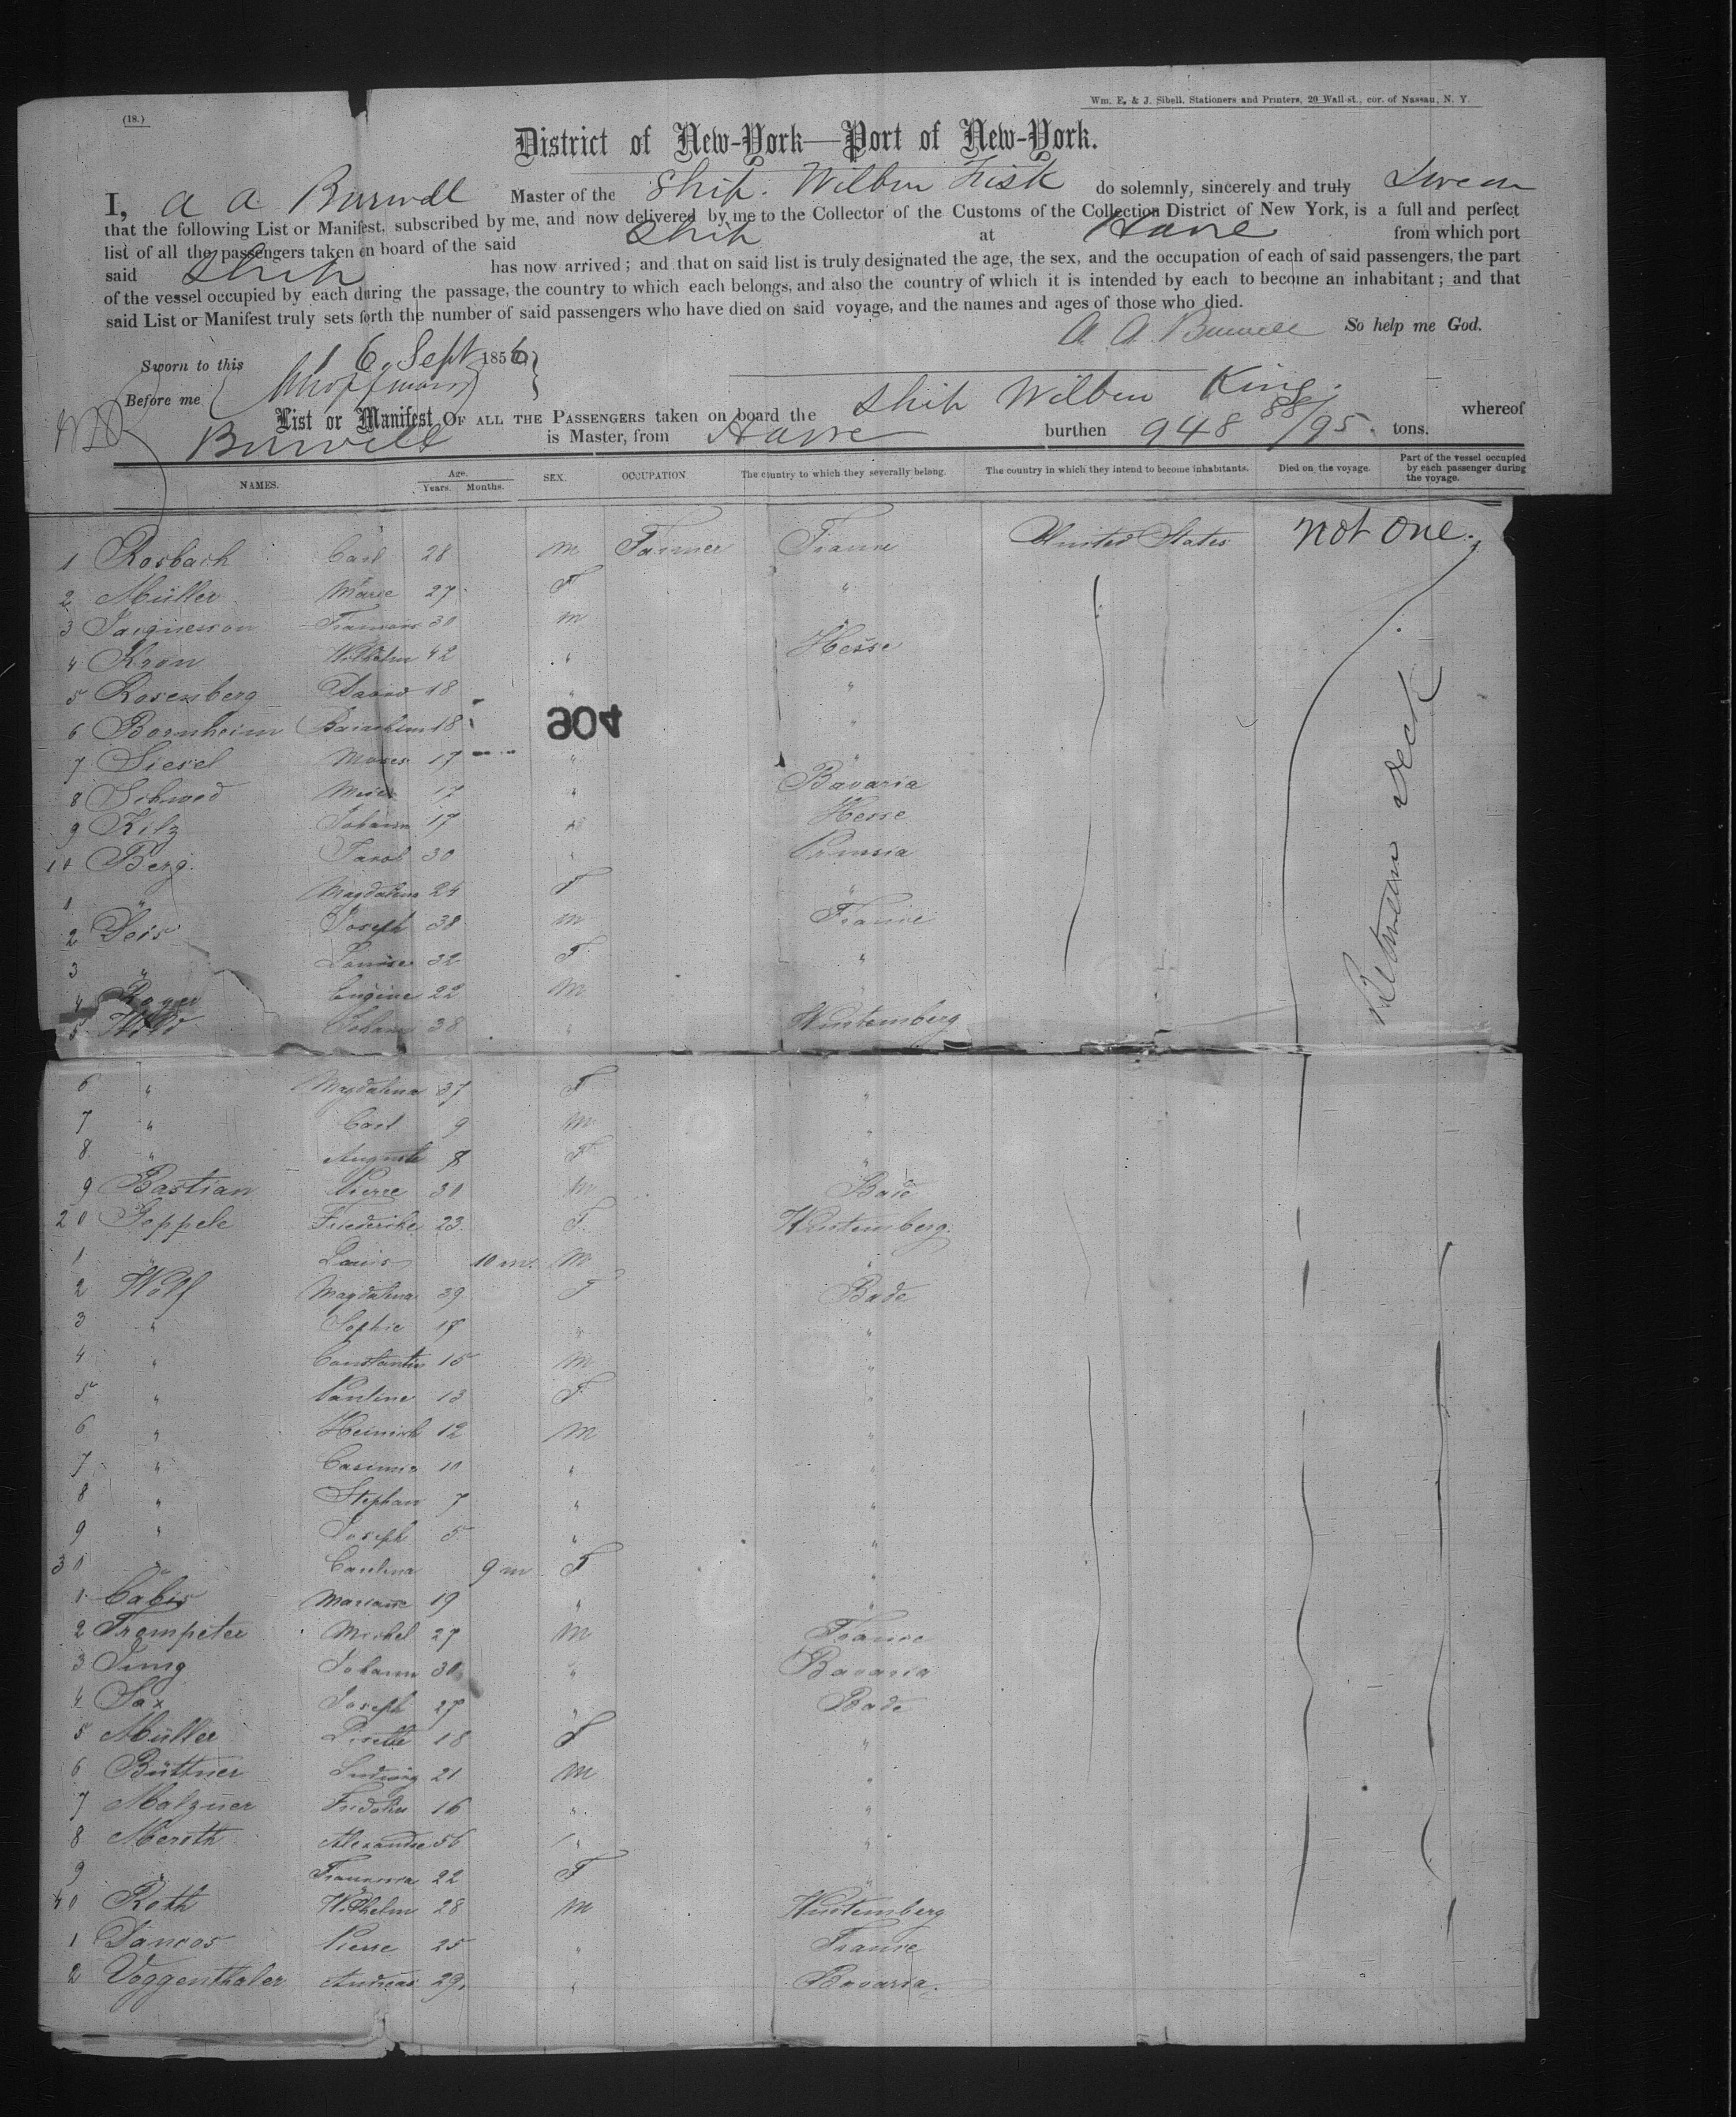 (18.)
Wm. E. & J. Sibell, Stationers and Printers, 20 Wall-st., cor. of Nassau, N. Y.
District of New-York—Port of New-York.
I, A A Burwell Master of the Ship. Wilbur Fisk do solemnly, sincerely and truly Swear
that the following List or Manifest, subscribed by me, and now delivered by me to the Collector of the Customs of the Collection District of New York, is a full and perfect
list of all the passengers taken on board of the said Ship at Havre from which port
said Ship has now arrived; and that on said list is truly designated the age, the sex, and the occupation of each of said passengers, the part
of the vessel occupied by each during the passage, the country to which each belongs, and also the country of which it is intended by each to become an inhabitant; and that
said List or Manifest truly sets forth the number of said passengers who have died on said voyage, and the names and ages of those who died.
A. A. Burwell So help me God.
Sworn to this 16 Sept 1856
Before me
List or Manifest OF ALL THE PASSENGERS taken on board the Ship Wilbur King. whereof
Burwell is Master, from Havre burthen 948 88/95 tons.
NAMES. Age. Years. Months. SEX. OCCUPATION. The country to which they severally belong. The country in which they intend to become inhabitants. Died on the voyage. Part of the vessel occupied by each passenger during the voyage.
1 Rosbach Carl 28 M Farmer France United States not one.
2 Müller Marie 27 F "
3 Jacquesson Francois 30 M "
4 Kron Wilhelm 42 " Hesse
5 Rosenberg David 18 " "
6 Bornheim 18 "
904
7 Siesel Moses 17 " "
8 Schwed 17 " Bavaria
9 Kilz Johann 17 " Hesse
10 Berg. Jacob 30 " Prussia
1 " Magdalena 24 F "
2 Deis Joseph 38 M France
3 " Louise 32 F "
4 Royer Eugène 22 M "
5 Johann 38 " Wurtemberg
Between deck
6 " Magdalena 37 F "
7 " Carl 9 M "
8 " Auguste 8 F "
9 Bastian Pierre 30 M Bade
20 Geppele Friederike 23 F Wurtemberg.
1 " Louis 10 m. M "
2 Wolf Magdalena 39 F Bade
3 " Sophie 17 " "
4 " Constantin 15 M "
5 " Pauline 13 F "
6 " Heinrich 12 M "
7 " Casimir 10 " "
8 " Stephan 7 " "
9 " Joseph 5 " "
30 " Carolina 9 m F "
1 Mariane 19 " "
2 Trompeter Michel 27 M France
3 Jung Johann 30 " Bavaria
4 Sax Joseph 27 " Bade
5 Müller Lisette 18 F "
6 Büttner Ludwig 21 M "
7 Malzuer 16 " "
8 Meroth Alexandre 56 " "
9 " Francisca 22 F "
40 Roth Wilhelm 28 M Wurtemberg
1 Dancos Pierre 25 " France
2 Voggenthaler Andreas 29. " Bavaria.